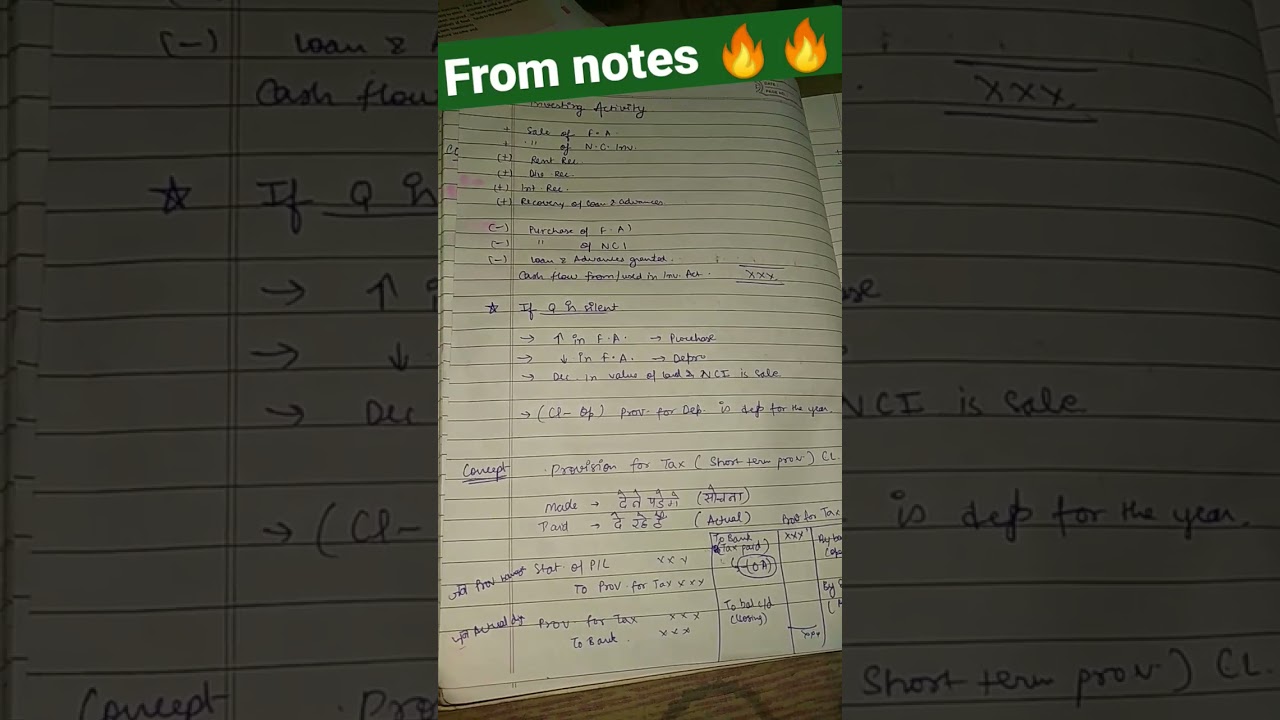 From notes 🔥🔥
Investing Activity
+ Sale of F.A.
+ " of N.C. Inv.
(+) Rent Rec.
(+) Div. Rec.
(+) Int. Rec.
(+) Recovery of loan & advances
(-) Purchase of F.A)
(-) " of NCI
(-) Loan & Advances granted.
Cash flow from/used in Inv. Act. xxx
☆ If Q is silent
→ ↑ in F.A. → Purchase
→ ↓ in F.A. → Depre
→ Dec in value of land & NCI is sale
→ (Cl - Op) Prov. for Dep. is dep for the year.
Concept Provision for Tax (Short term prov.) CL.
Made → देने पड़ेंगे (सोचना)
Paid → दे रहे हैं (Actual)
Prov for Tax
Stat. of P/L xxx
To Prov. for Tax xxx
Prov for Tax xxx
To Bank. xxx
To Bank xxx
(Tax paid)
(OA)
To bal c/d
(closing)
xxx
(-) Loan &
Cash flow
xxx
☆ If Q is
→ ↑
→ ↓
→ Dec
NCI is sale
→ (Cl -
is dep for the year.
Concept
Short term prov.) CL.